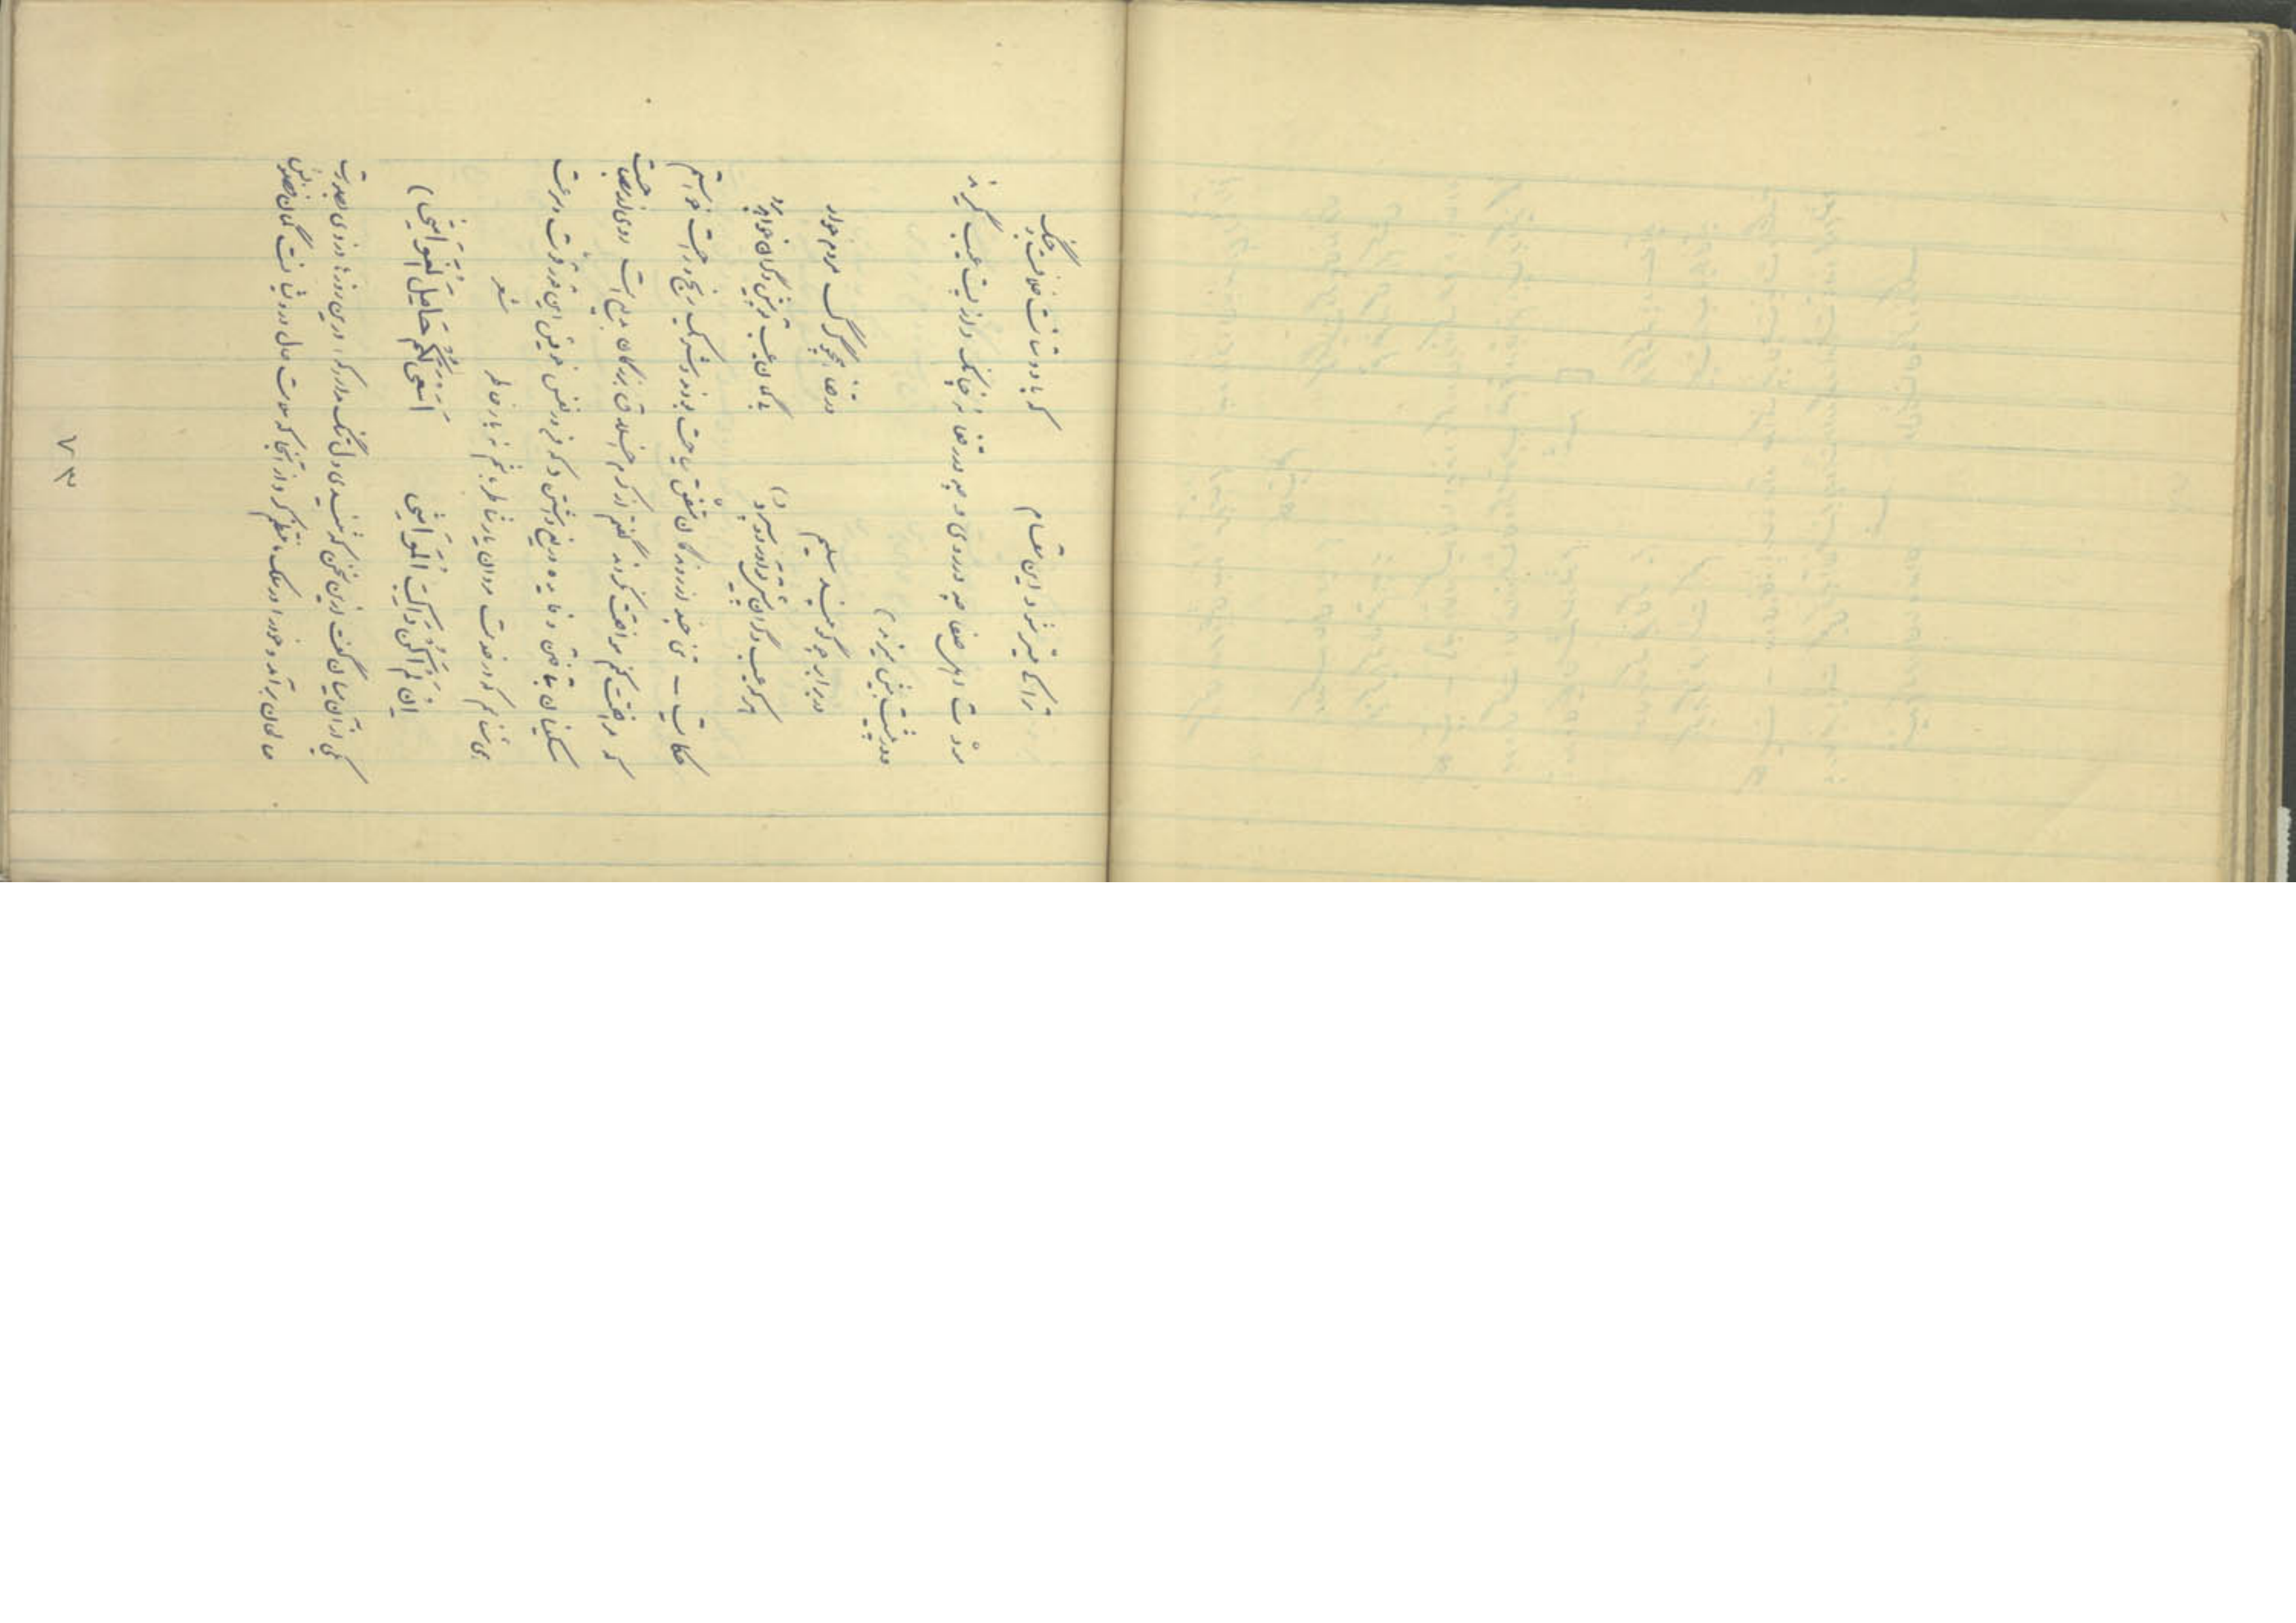 ترا کی میسر شود این مقام   که با دوستانت خلافست و جنگ
مودت اهل صفا چه در روی و چه در قفا نه چنانک از پست عیب گیرند
و در پیشت پیش میرند )
در برابر چو گوسفند سلیم   در قفا همچو گرگ مردم خوار
هر که عیب دگران پیش تو آورد و شمرد   بی گمان عیب تو پیش دگران خواهد برد
حکایت - تنی چند از روندگان متفق سیاحت بودند و شریک رنج و راحت خواستم
که مرافقت کنم موافقت نکردند گفتم از کرم اخلاق بزرگان بدیع است روی از مصاحبت
مسکینان تافتن و فایده دریغ داشتن که من در نفس خویش این قدر قوت و سرعت
می شناسم که در خدمت مردان یار شاطر باشم نه بار خاطر   شعر
اِن لَم اَکُن راکِبَ المَواشی   اَسعی لَکُم حامِلَ الغَواشی )
یکی از آن میان گفت ازین سخن که شنیدی دل تنگ مدار که درین روزها دزدی بصورت
صالحان برآمد و خود را در سلک ما منتظم کرد و از آنجا که سلامت حال درویشانست گمان فضولش
۷۳